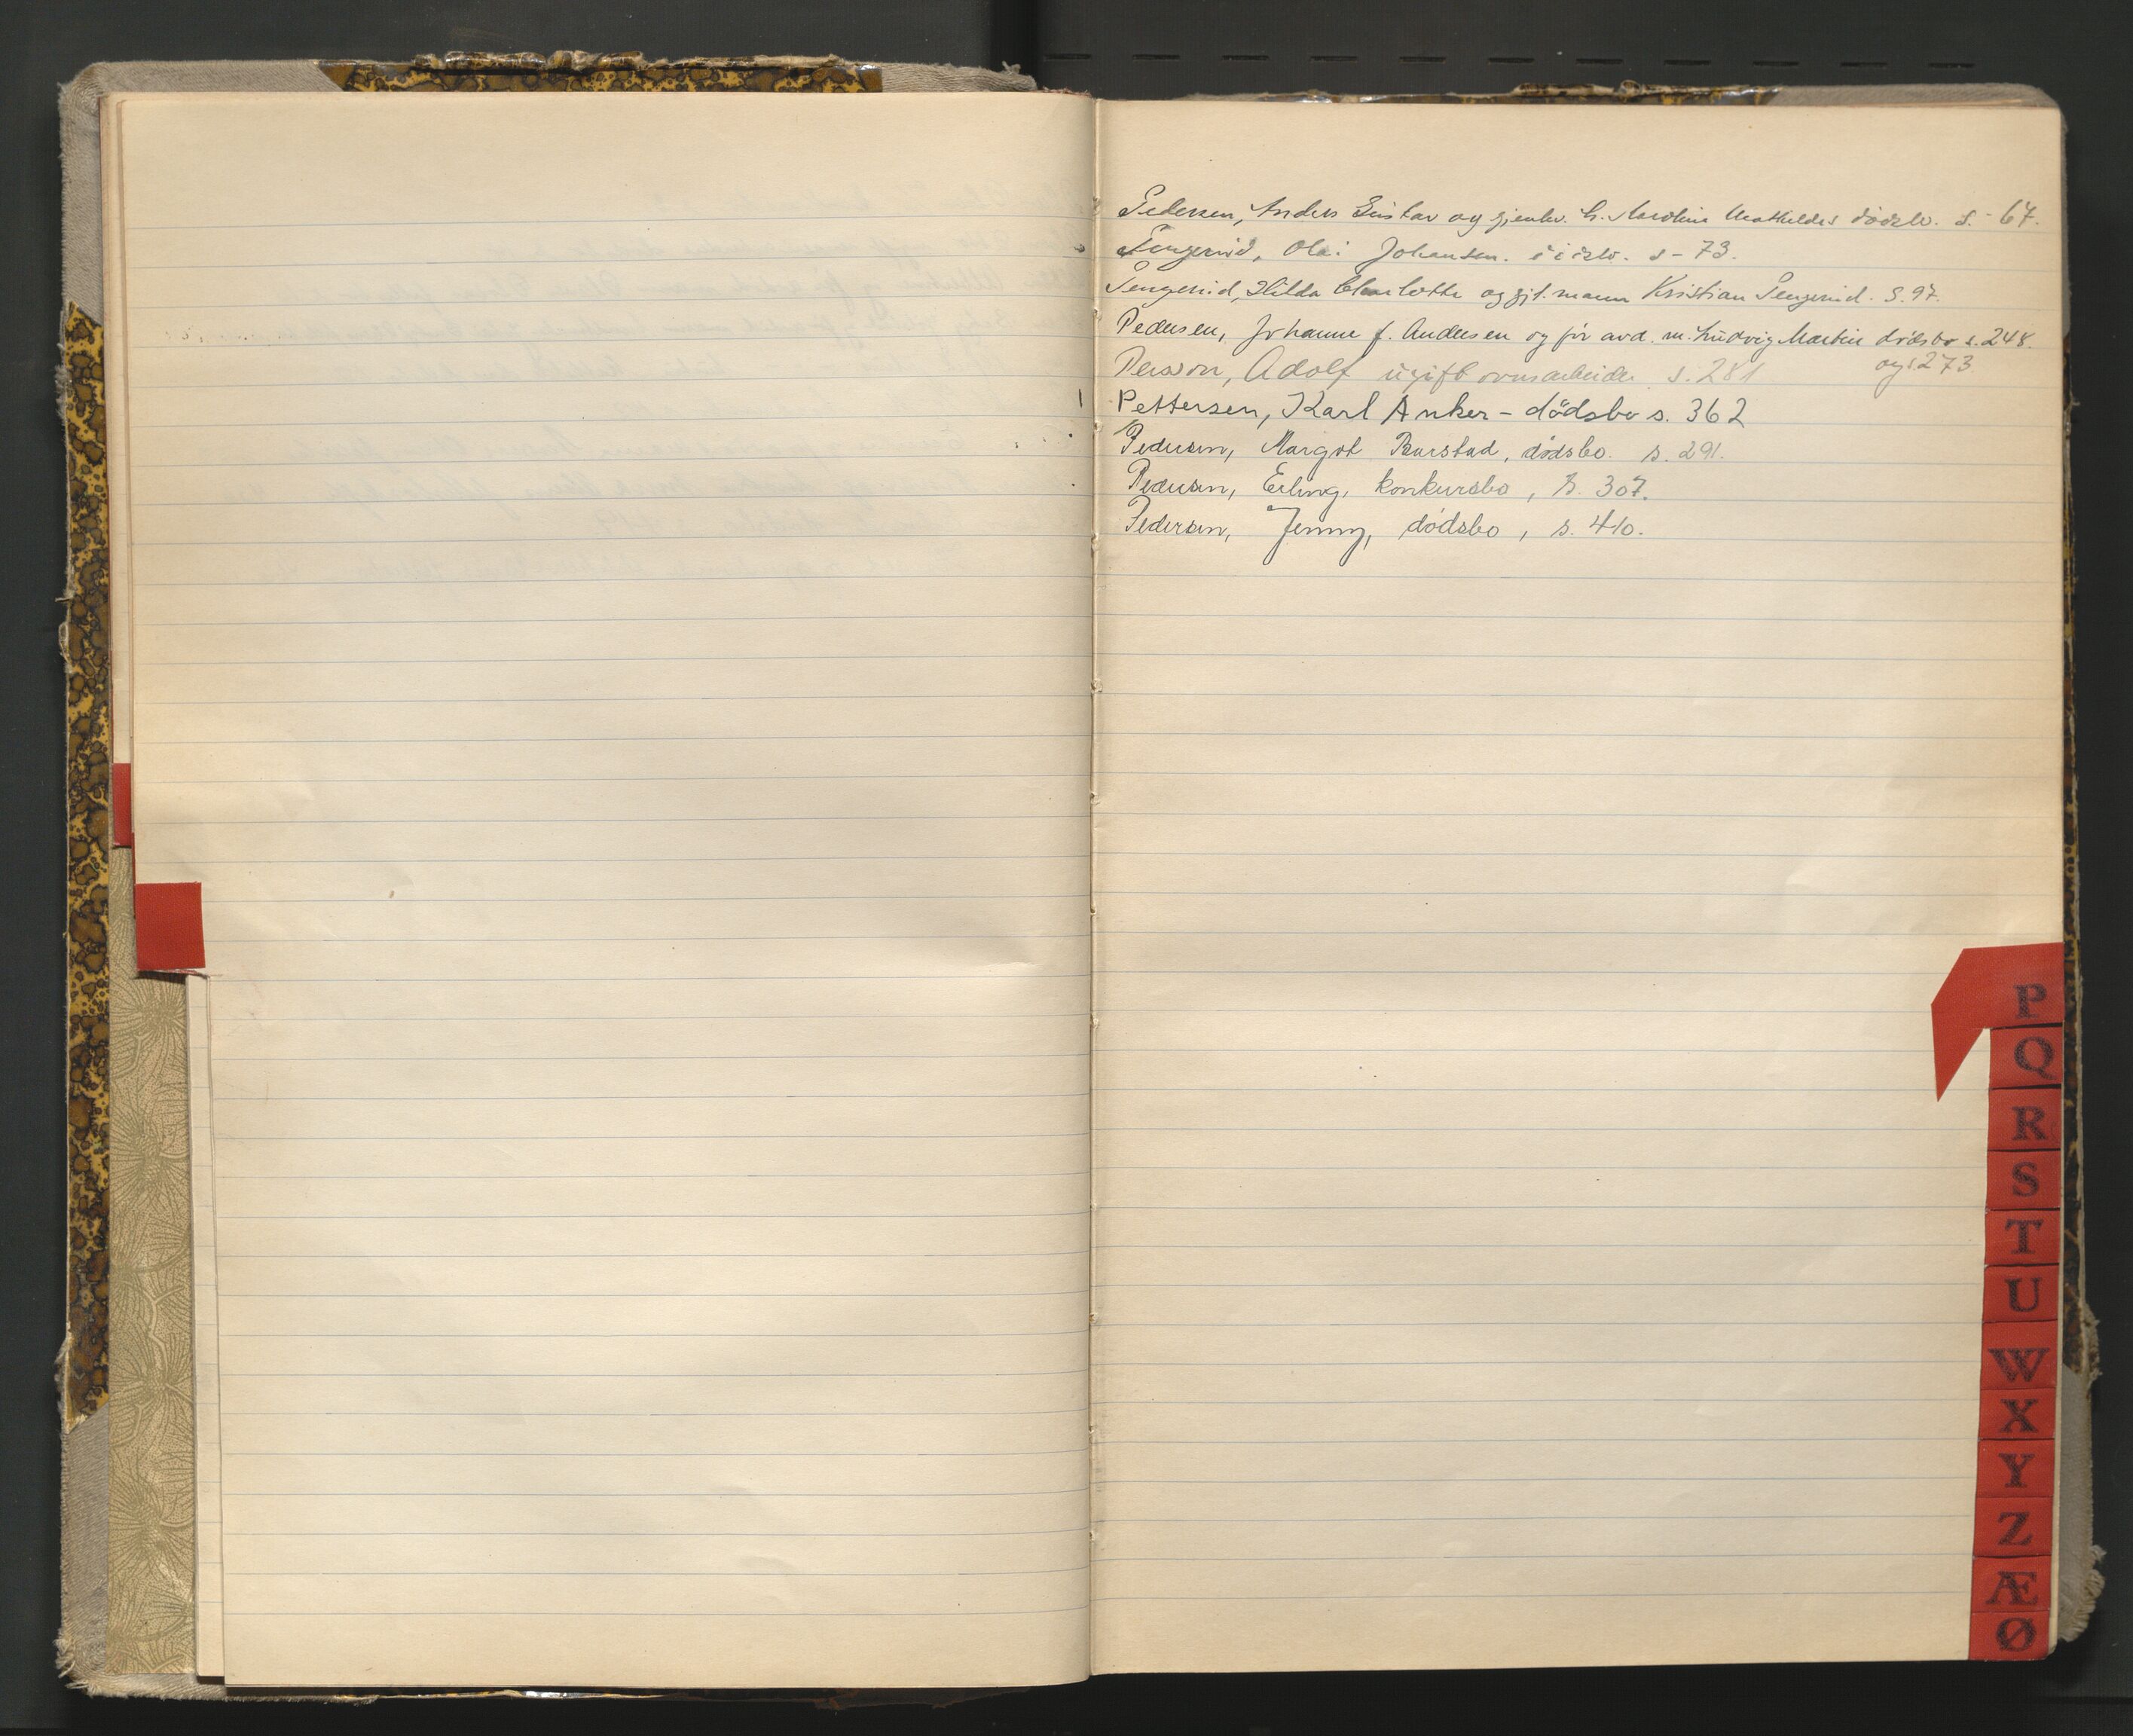 Pedersen, Anders Gustav og gjenlev. h. Karoline Mathildes dødsbo. s. 67.
Pengerud, Ole Johansen. s - 73.
Pengerud, Hilda Charlotte og gjt. mann Kristian Pengerud. S. 97.
Pedersen, Johanne f. Andersen og før avd. m. Ludvig Martin dødsbo s. 248.
og s 273
Persson, Adolf ugift ovnsarbeider s. 281
Pettersen, Karl Anker - dödsbo s. 362
Pedersen, Margot Barstad, dødsbo. s. 291.
Pedersen, Erling, konkursbo, s. 307.
Pedersen, Jenny, dødsbo, s. 410.
P
Q
R
S
T
U
W
X
Y
Z
Æ
Ø